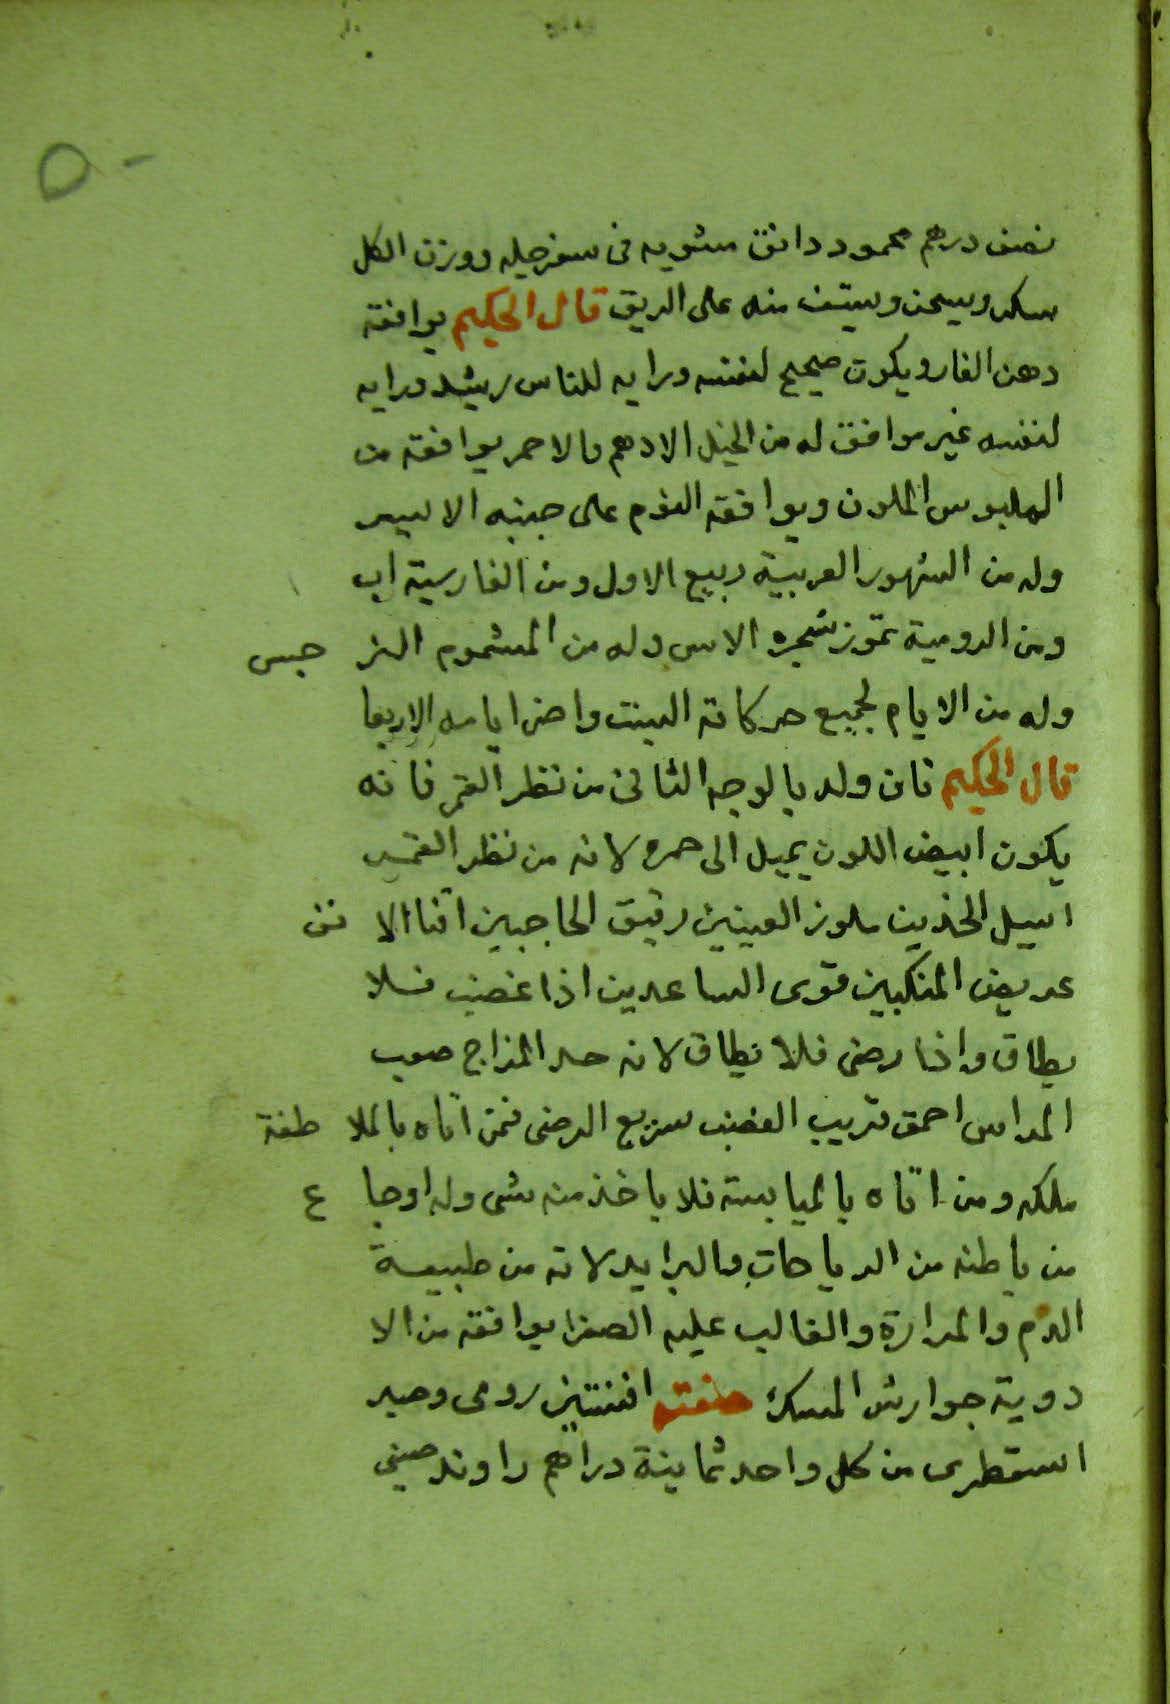 ٥٠
نصف درهم محمود دانق مشويه فى سفرجله ووزن الكل
سكر ويسحن ويستف منه على الريق قال الحكيم يوافقه
دهن الغار ويكون صحيح لنفسه ورايه للناس رشيد ورايه
لنفسه غير موافق له من الخيل الادهم والاحمر يوافقه من
الملبوس الملون ويوافقه النوم على جنبه الايسر
وله من الشهور العربية ربيع الاول ومن الفارسية اب
ومن الرومية تموز شجره الاس وله من المشموم النر جس
وله من الايام لجميع حركاته السبت واضر ايامه الاربعا
قال الحكيم فان ولد بالوجه الثانى من نظر القمر فانه
يكون ابيض اللون يميل الى حمره لانه من نظر القمر
اسيل الخدين ملوز العينين رقيق الحاجبين اقنا الا نف
عريض المنكبين قوى الساعدين اذا غضب فلا
يطاق واذا رضى فلا يطاق لانه حد المزاج صعب
المراس احمق قريب الغضب سريع الرضى فمن اتاه بالملا طفة
ملكه ومن اتاه باليابسة فلا ياخذ منه شى وله اوجا ع
من باطنه من الرياحات والبرايد لانه من طبيعة
الدم والمرارة والغالب عليه الصفرا يوافقه من الا
دوية جوارش المسك صفته افسنتين رومى وصبر
اسقطرى من كل واحد ثمانية دراهم راوند صينى